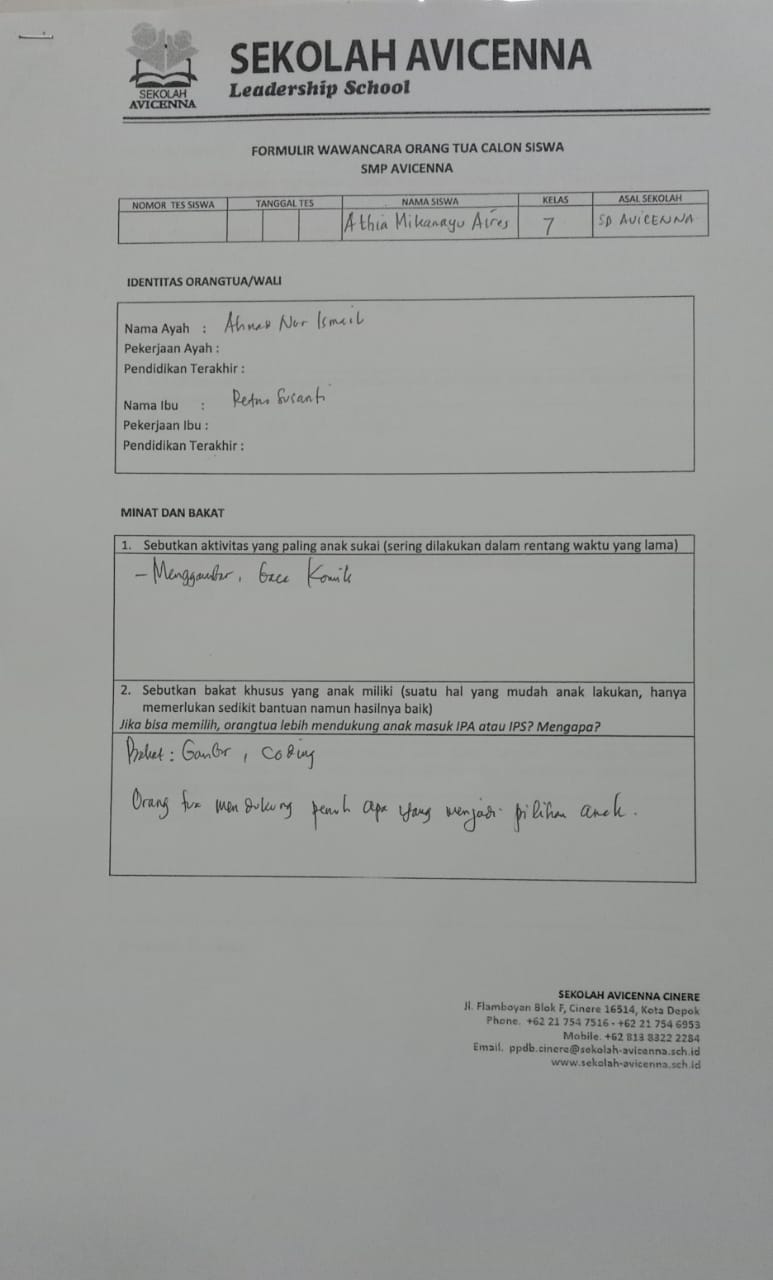 SEKOLAH AVICENNA
Leadership School
SEKOLAH
AVICENNA
FORMULIR WAWANCARA ORANG TUA CALON SISWA
SMP AVICENNA
NOMOR TES SISWA TANGGAL TES NAMA SISWA KELAS ASAL SEKOLAH
Athia Mikanayu Aires 7 SD AVICENNA
IDENTITAS ORANGTUA/WALI
Nama Ayah : Ahmad Nur Ismail
Pekerjaan Ayah :
Pendidikan Terakhir :
Nama Ibu : Retno Susanti
Pekerjaan Ibu :
Pendidikan Terakhir :
MINAT DAN BAKAT
1. Sebutkan aktivitas yang paling anak sukai (sering dilakukan dalam rentang waktu yang lama)
- Menggambar, baca Komik
2. Sebutkan bakat khusus yang anak miliki (suatu hal yang mudah anak lakukan, hanya
memerlukan sedikit bantuan namun hasilnya baik)
Jika bisa memilih, orangtua lebih mendukung anak masuk IPA atau IPS? Mengapa?
Bakat : Gambar, coding
Orang tua mendukung penuh apa yang menjadi pilihan anak.
SEKOLAH AVICENNA CINERE
Jl. Flamboyan Blok F, Cinere 16514, Kota Depok
Phone. +62 21 754 7516 - +62 21 754 6953
Mobile. +62 813 8322 2284
Email. ppdb.cinere@sekolah-avicenna.sch.id
www.sekolah-avicenna.sch.id